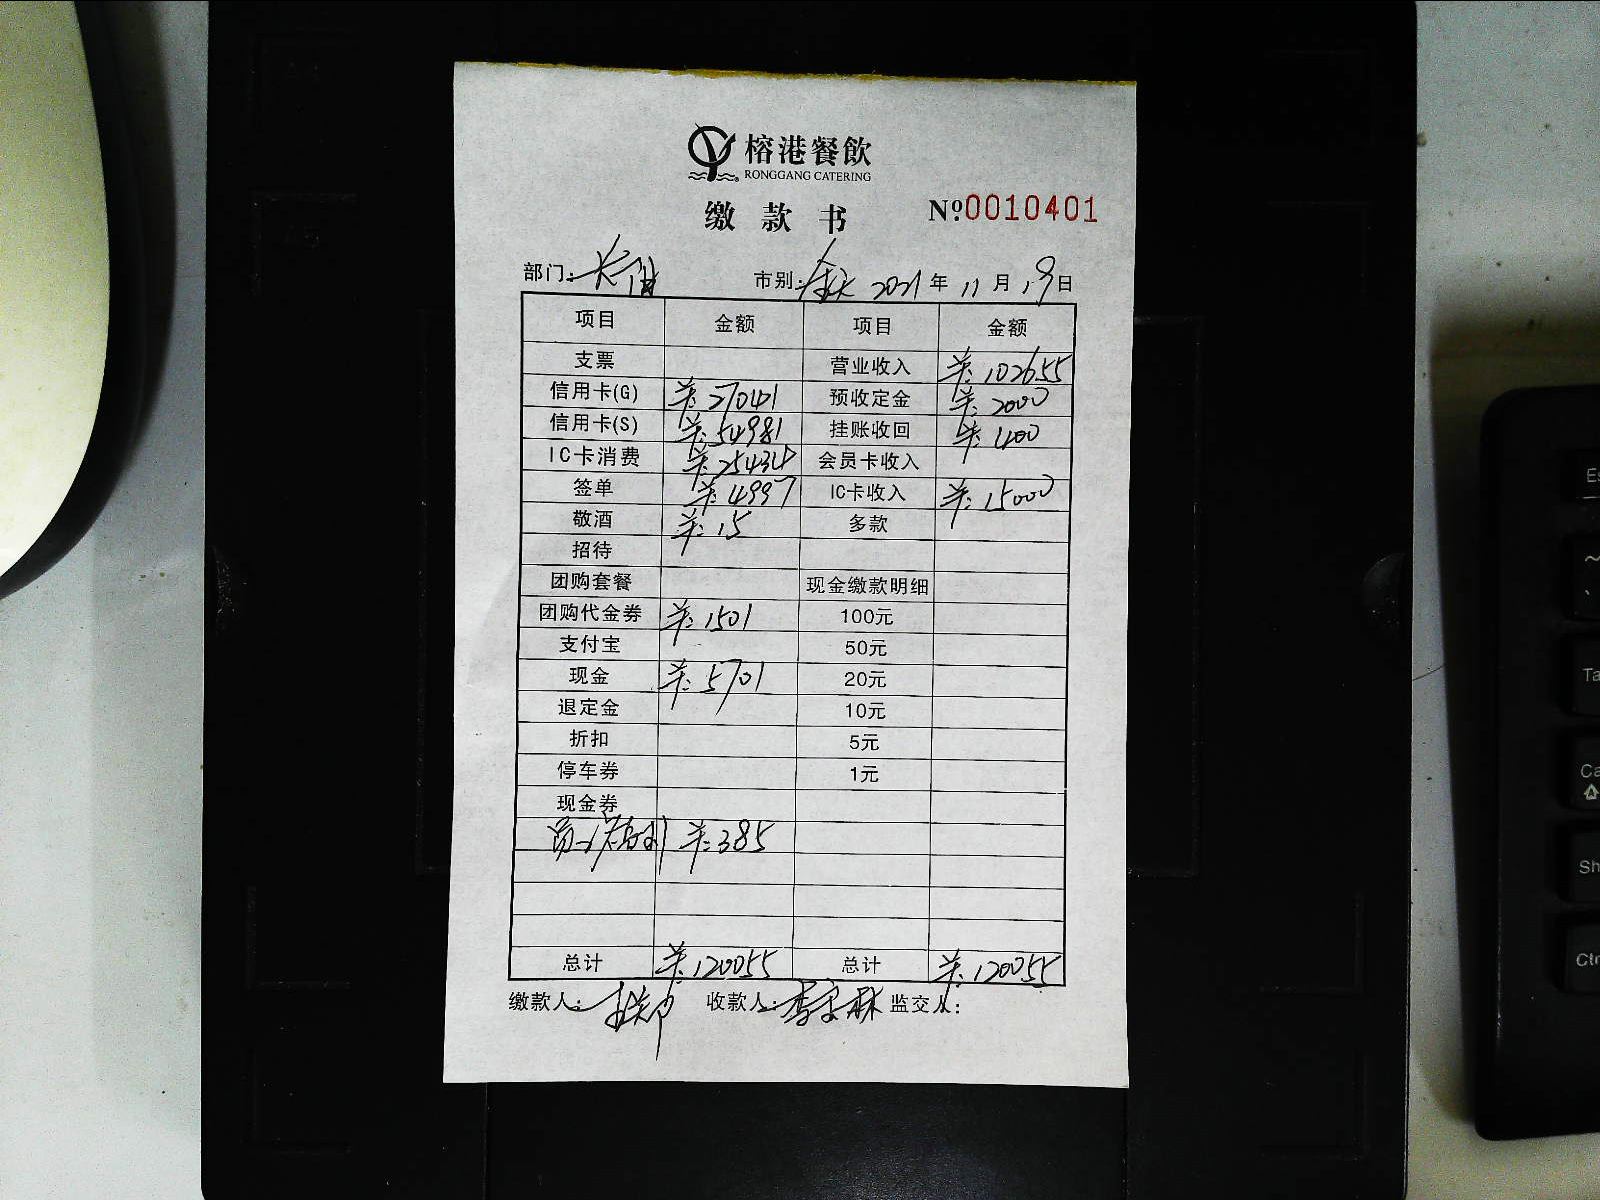 榕港餐飲
RONGGANG CATERING
缴款书 №0010401
部门: 市别:全天 2021年11月19日
项目 金额 项目 金额
支票 营业收入 ¥:102655
信用卡(G) ¥:27041 预收定金 ¥:2000
信用卡(S) ¥:54981 挂账收回 ¥:400
IC卡消费 ¥:25434 会员卡收入
签单 ¥:4997 IC卡收入 ¥:15000
敬酒 ¥:15 多款
招待
团购套餐 现金缴款明细
团购代金券 ¥:1501 100元
支付宝 50元
现金 ¥:5701 20元
退定金 10元
折扣 5元
停车券 1元
现金券
¥:385
总计 ¥:120055 总计 ¥:120055
缴款人: 收款人: 监交人: